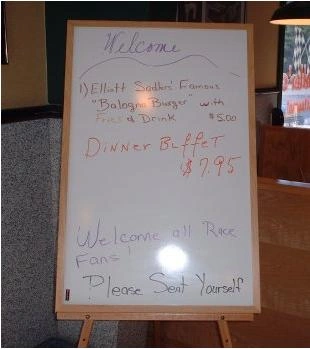 Welcome
1) Elliott Sadlers' Famous
"Bologna Burger" with
Fries & Drink $5.00
Dinner Buffet
$7.95
Welcome all Race
Fans!
Please Seat Yourself